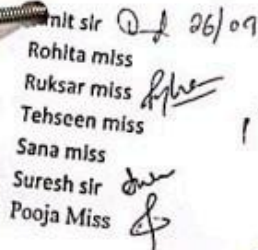 mit sir 26/09
Rohita miss
Ruksar miss
Tehseen miss
Sana miss
Suresh sir
Pooja Miss